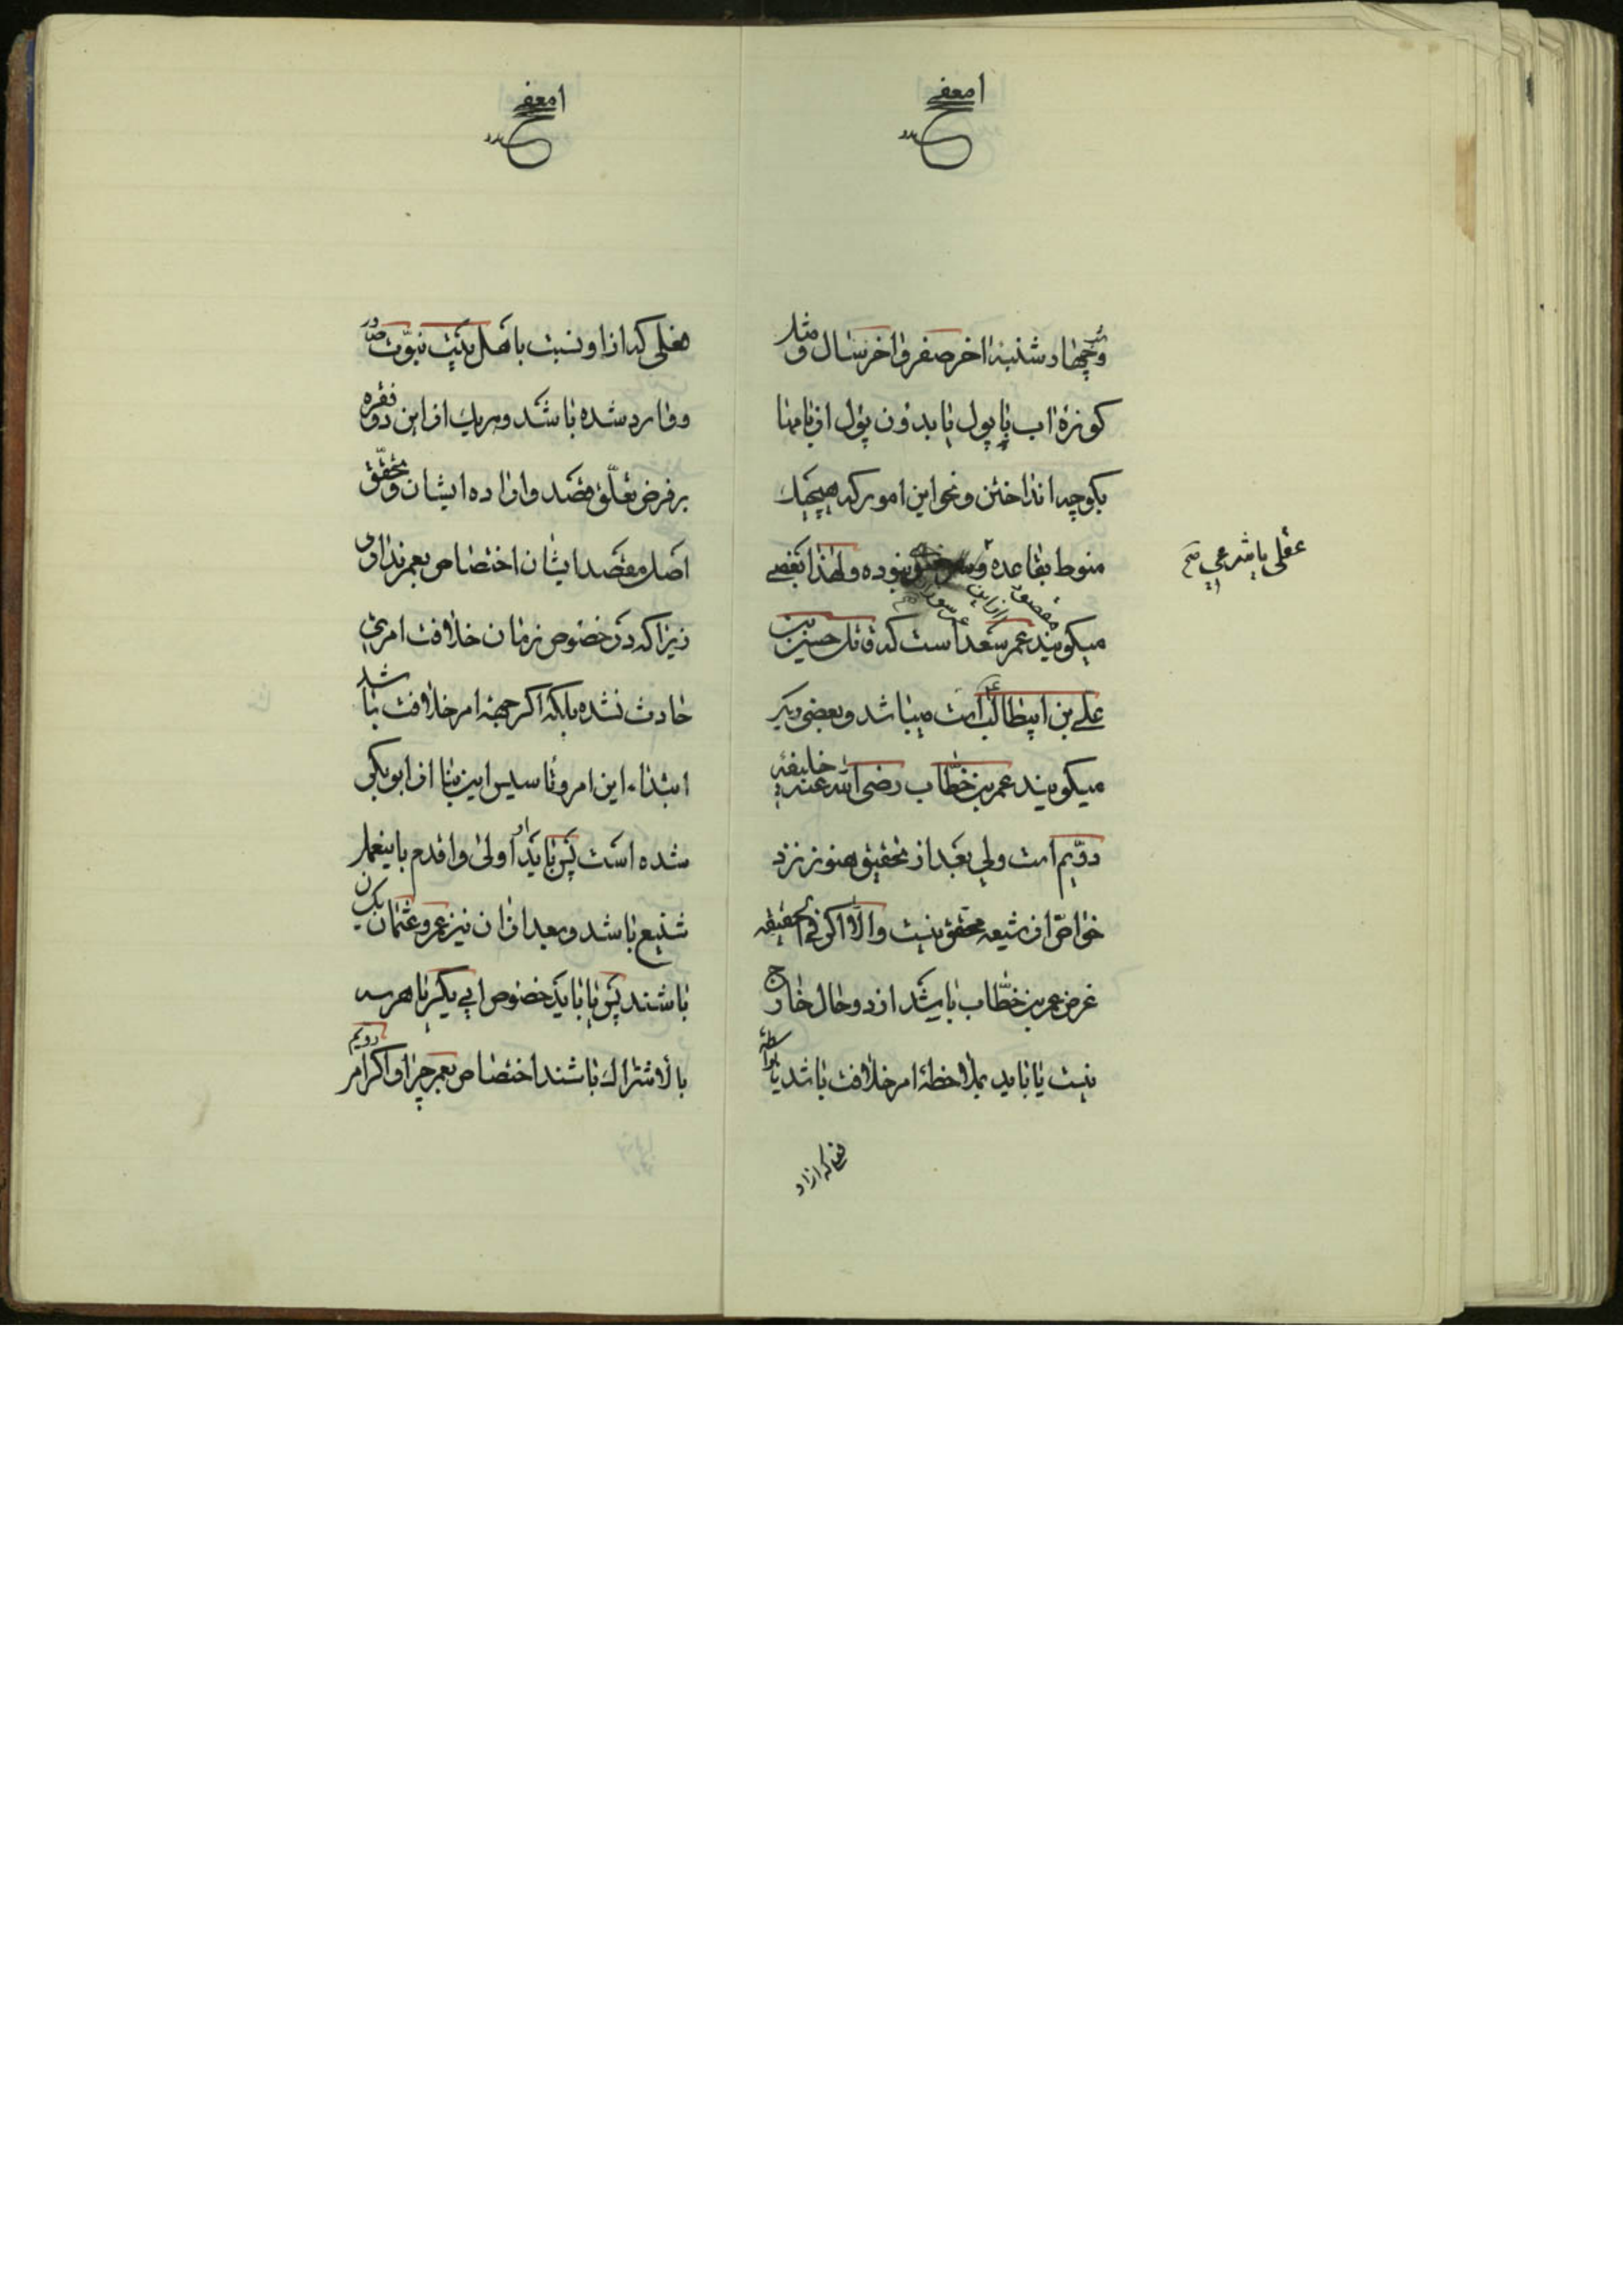 وشب چهارشنبهٔ اخر صفر و اخر سال و مثل
کوزهٔ اب با پول یا بدون پول از بامها
بکوچه انداختن و نحو این امور که هیچیک
منوط بقاعده نبوده و لهذا بعضی
عقلی یا شرعی صح
مقصود از این
میکویند عمر سعد است که قاتل حسین بن
علی بن ابیطالب است میباشد و بعضی دیکر
میکویند عمر بن خطّاب رضی الله عنه خلیفهٔ
دوّیم است ولی بعد از تحقیق هنوز نزد
خواصّ از شیعه محقق نیست والّا اکر فی الحقیقه
غرض عمر بن خطّاب باشد از دو حال خارج
نیست یا باید بملاحظهٔ امر خلافت باشد یا بواسطهٔ
فعلی که از او
فعلی که از او نسبت باهل بیت نبوّت صادر
و وارد شده باشد و هریک از این دو فقره
بر فرض تعلّق قصد و ارادهٔ ایشان و تحقّق
اصل مقصد ایشان اختصاص بعمر ندارد
زیرا که در خصوص زمان خلافت امری
حادث نشده بلکه اکر جهة امر خلافت باشد
ابتداء این امر و تاسیس این بنا از ابوبکر
شده است پس باید او اولی و اقدم باینعمل
شنیع باشد و بعد از ان نیز عمر و عثمان
باشند پس یا باید خصوص ابی بکر یا هر سه
بالاشتراک باشند اختصاص بعمر چرا و اکر امر دویم